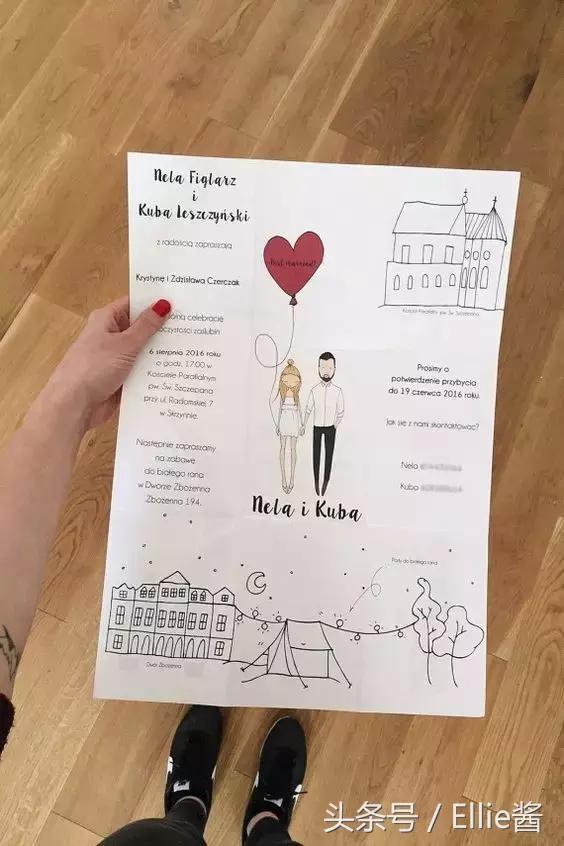 Nela Figlarz
i
Kuba Leszczyński
z radością zapraszają
Krystynę i Zdzisława Czerczak
celebrację
uroczystości zaślubin
6 sierpnia 2016 roku
o godz. 17.00 w
Kościele Parafialnym
pw. Św. Szczepana
przy ul. Radomskiej 7
w Skrzynnie.
Następnie zapraszamy
na zabawę
do białego rana
w Dworze Zbożenna
Zbożenna 194.
Just married!
Nela i Kuba
Kościół Parafialny pw. Św. Szczepana
Prosimy o
potwierdzenie przybycia
do 19 czerwca 2016 roku.
Jak się z nami skontaktować?
Nela
Kuba
Party do białego rana
Dwór Zbożenna
头条号 / Ellie酱